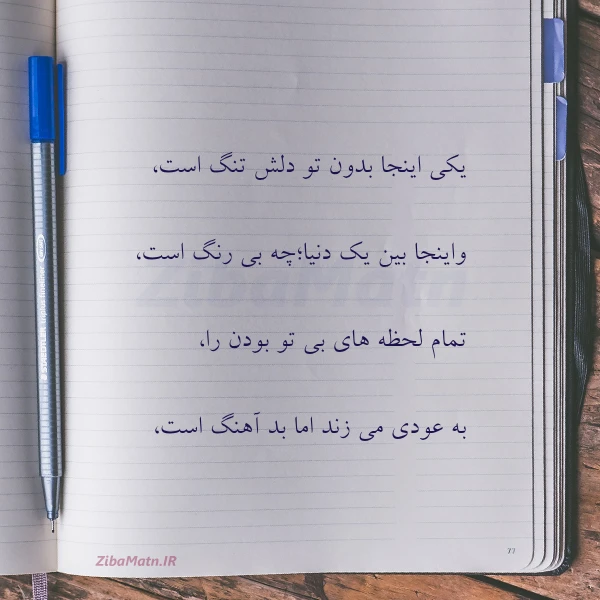 یکی اینجا بدون تو دلش تنگ است،
واینجا بین یک دنیا؛چه بی رنگ است،
تمام لحظه های بی تو بودن را،
به عودی می زند اما بد آهنگ است،
77
ZibaMatn.IR
STAEDTLER triplus fineliner
ZibaMatn